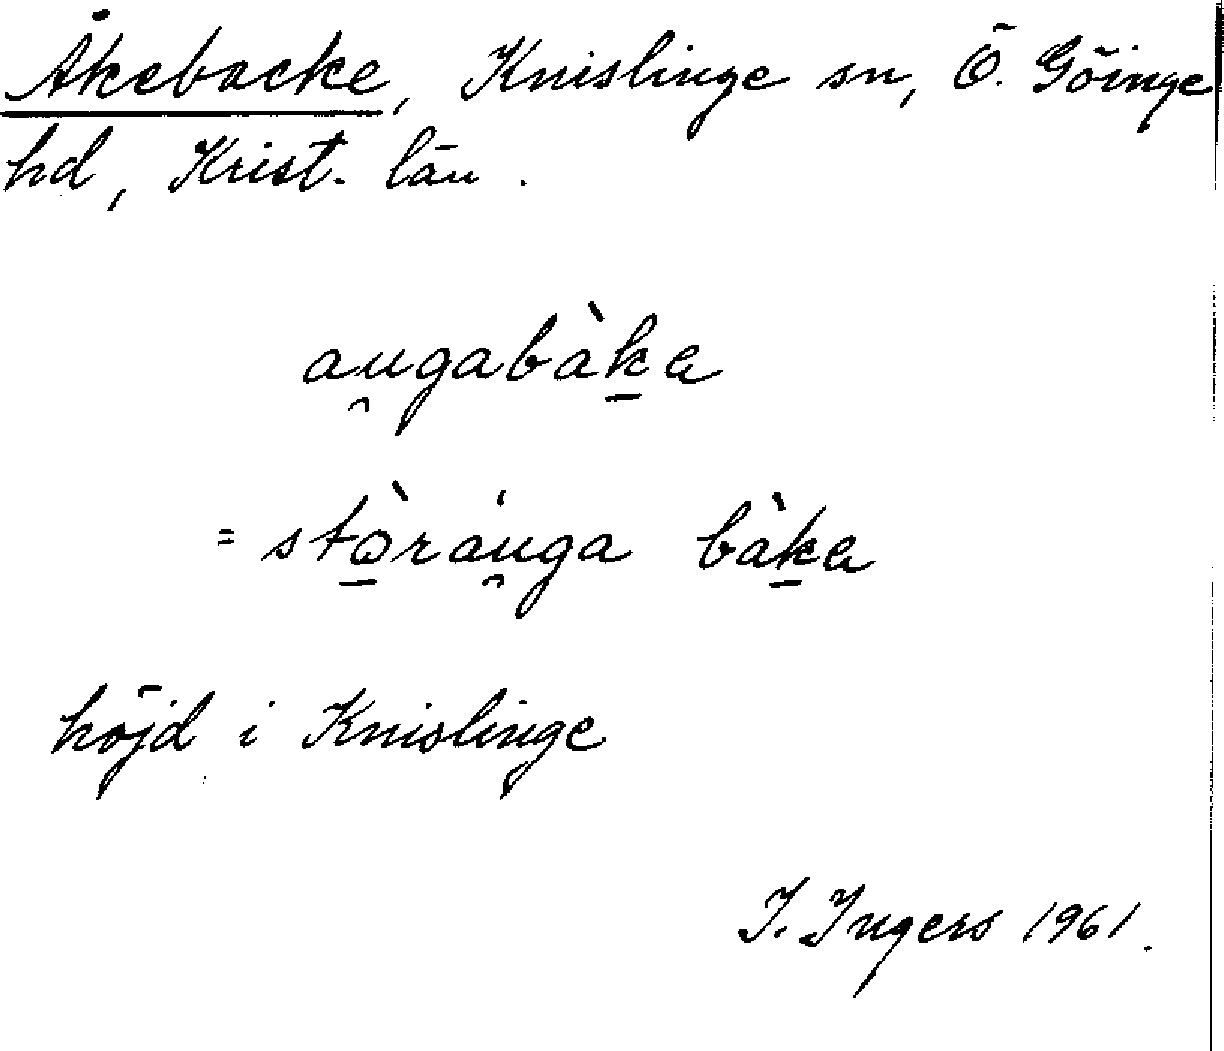 Åkebacke, Knislinge sn, Ö. Göinge
hd, Krist. län.
au̯gabàk̲a
= stò̲ráu̯ga bàk̲a
höjd i Knislinge
I. Ingers 1961.